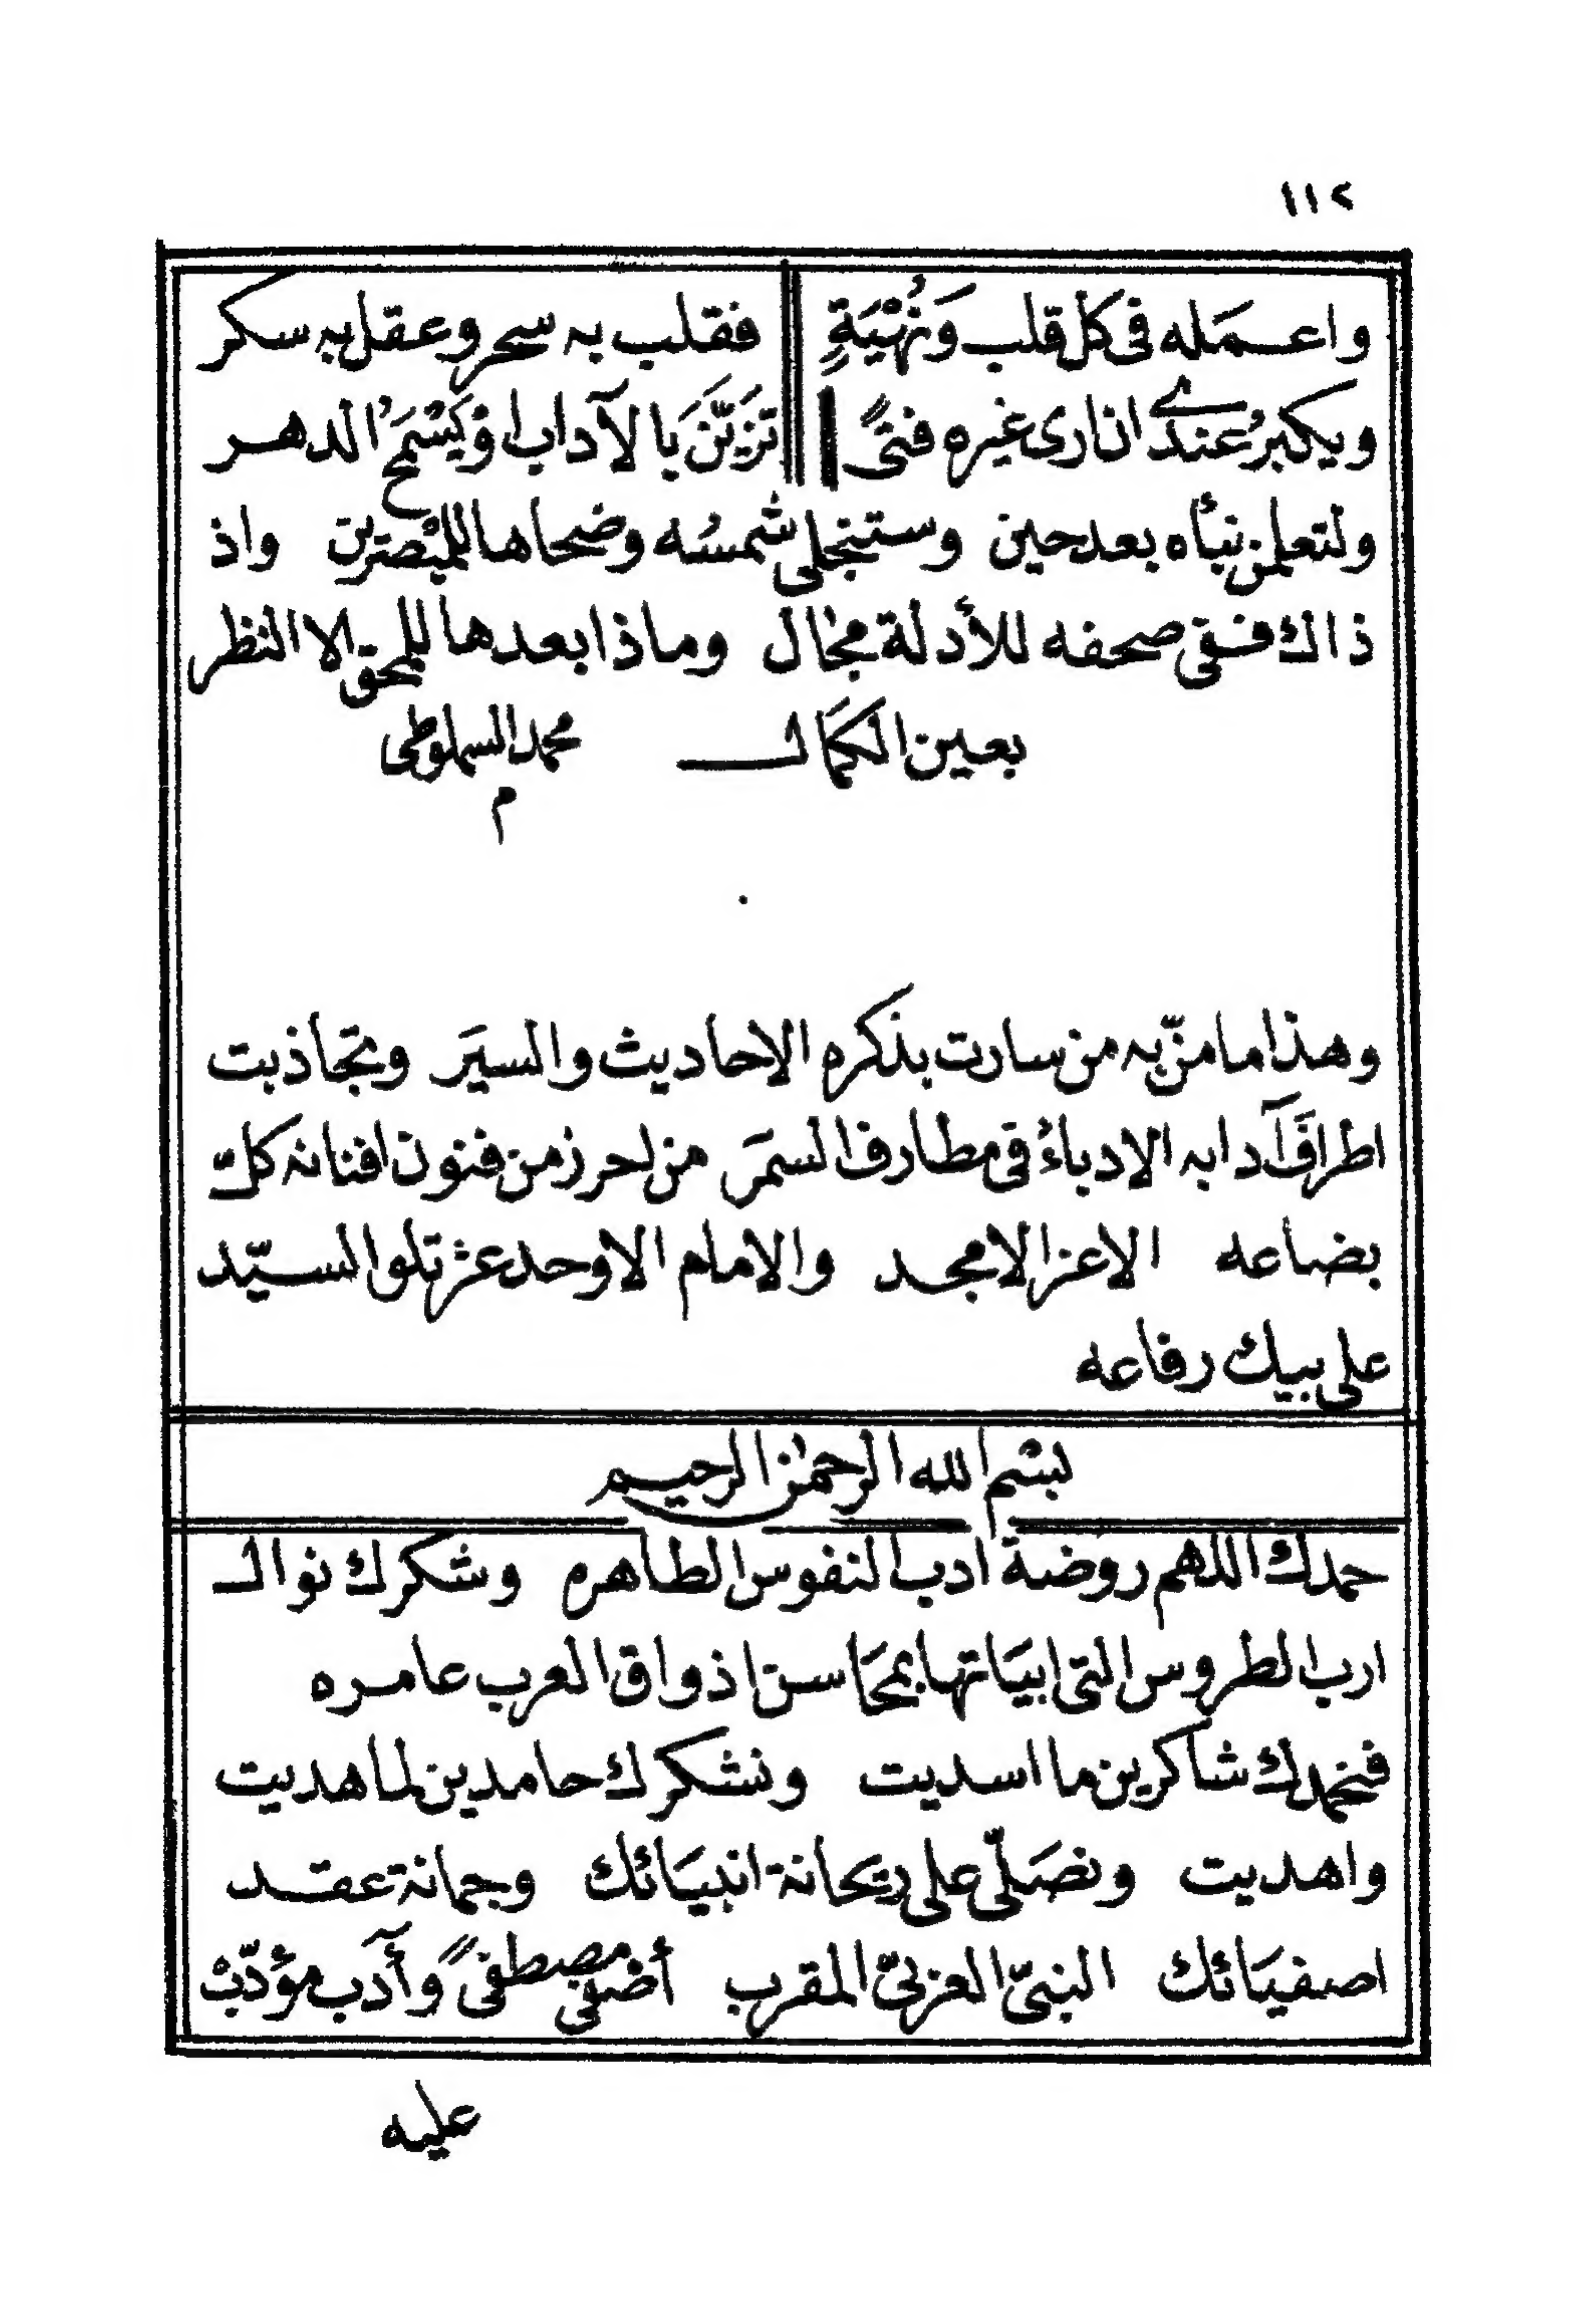 ١١٢
واعـمَله فى كل قلب وَنُهْيَةٍ فقلب به سحر وعقل به سكر
ويكبرُ عندى ان ارى غيره فتىً تَزَيَّنَ بالآداب او يَسْمَحُ الدهر
ولتعلمن نبأه بعد حين وستنجلى شمسُه وضحاها للمبْصرين واذ
ذاك فـفى صحفه للأدلة مجال وماذا بعدها للمحق الا النظر
بعين الكمال محمد السملوطى
م
وهذا ما منّ به من سارت بذكره الاحاديث والسيَر وتجاذبت
اطرافَ آدابه الادباءُ فى مطارف السمَر من احرز من فنون افنانه كلّ
بضاعه الاعز الامجد والامام الاوحد عزتلو السيّد
على بيك رفاعه
بسم الله الرحمن الرحيم
حمدك اللهم روضة ادب النفوس الطاهره وشكرك نوال
ارب الطروس التى ابيَاتها بمحَاسن اذواق العرب عامره
فنحمدك شاكرين ما اسديت ونشكرك حامدين لما هديت
واهديت ونصَلّى على ريحانة انبيَائك وجمانة عقد
اصفيَائك النبىّ العربىّ المقرب أصْفى مصطفىً وآدَب مؤدّبْ
عليه